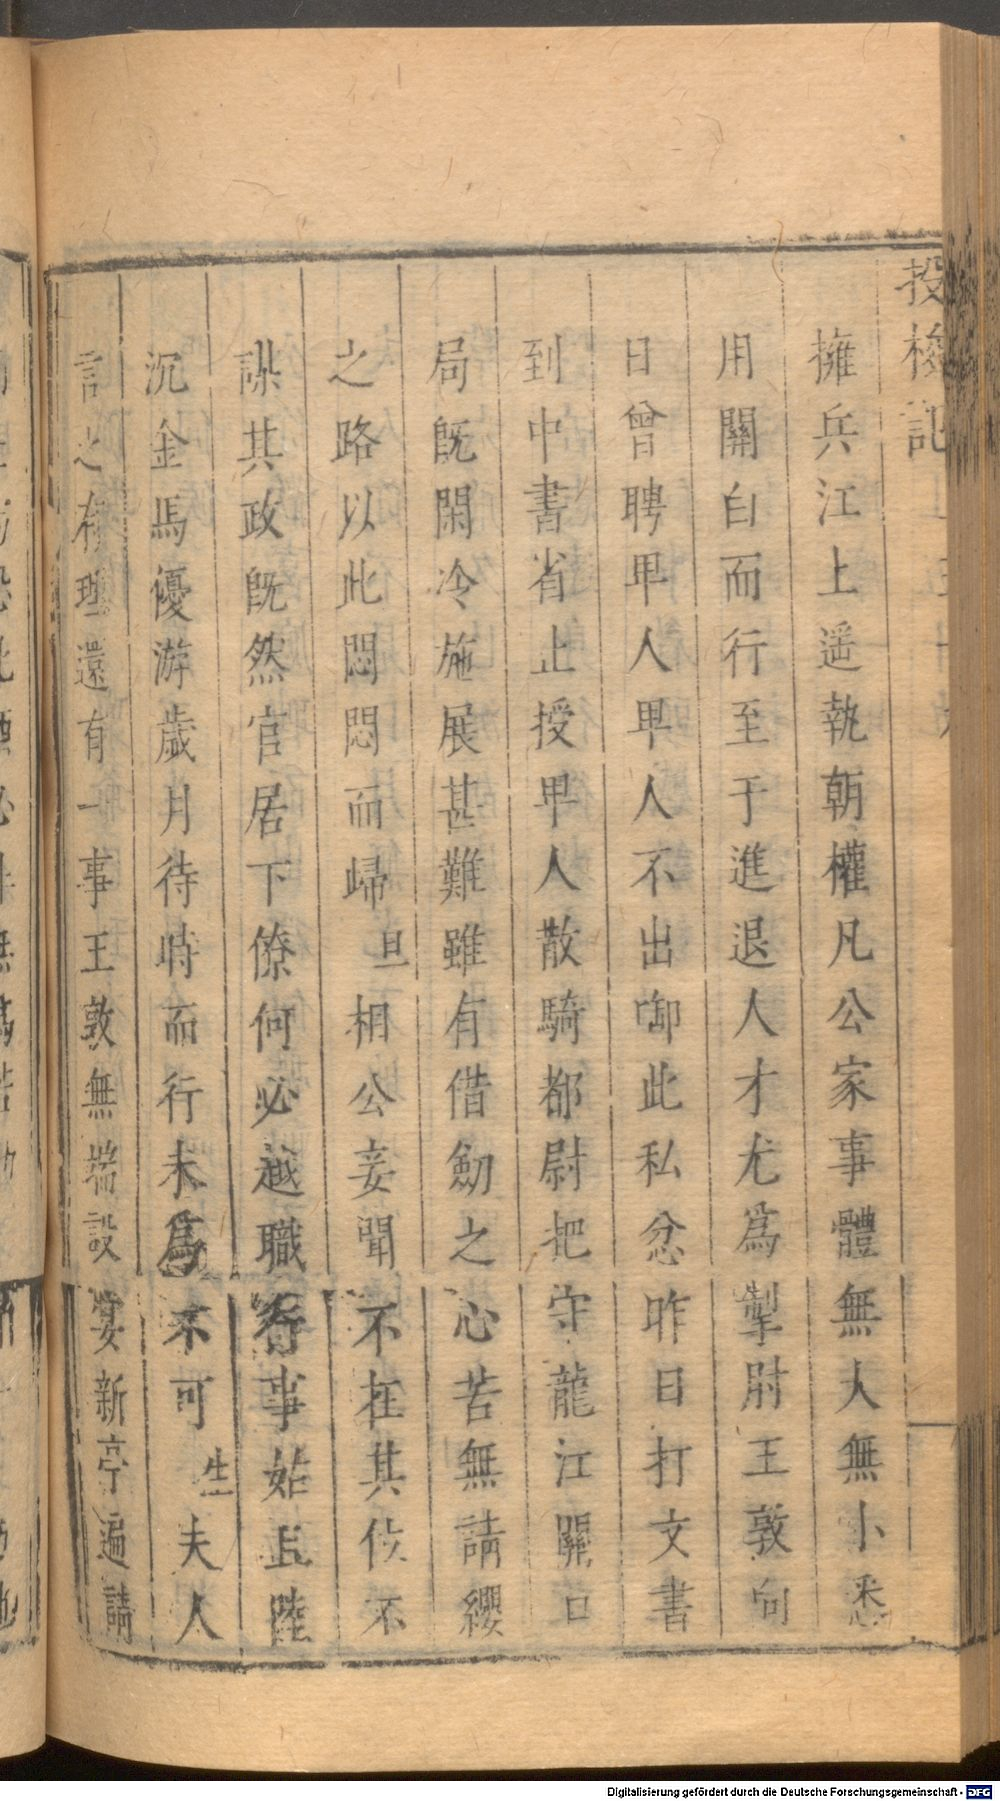 投梭記
擁兵江上遥執朝權凡公家事體無大無小悉
用關白而行至于進退人才尤為掣肘王敦向
日曾聘卑人卑人不出啣此私忿昨日打文書
到中書省止授卑人散騎都尉把守龍江關口
局旣閑冷施展甚難雖有借劒之心苦無請纓
之路以此悶悶而歸旦相公妾聞不在其位不
謀其政旣然官居下僚何必越職行事始且陸
沉金馬優游歲月待時而行未爲不可生夫人
言之有理還有一事王敦無端設宴新亭遍請
Digitalisierung gefördert durch die Deutsche Forschungsgemeinschaft - DFG